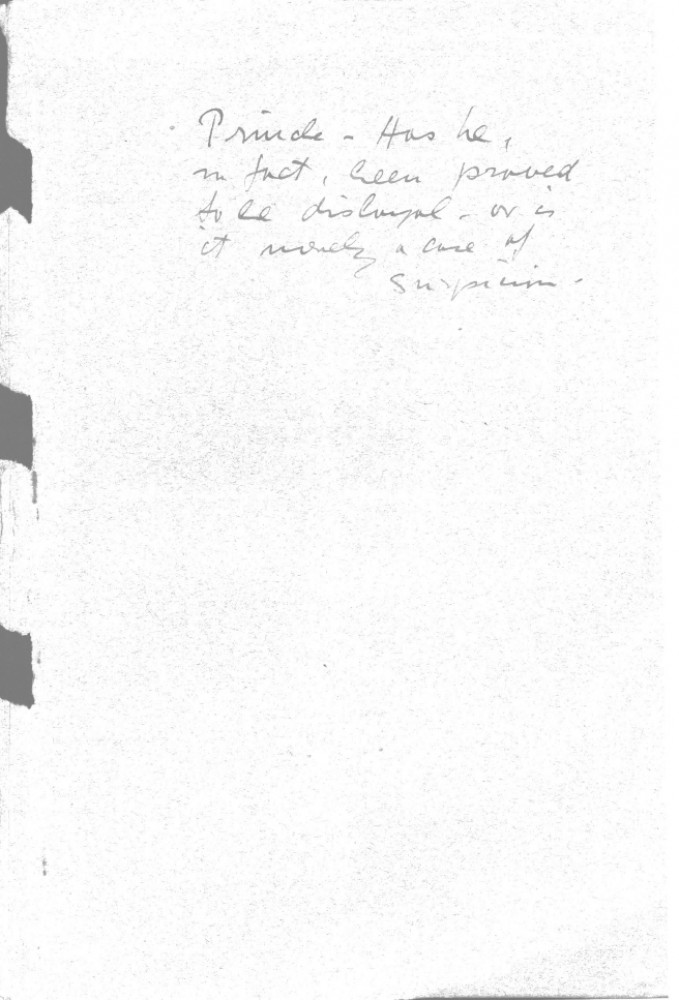 Prince - Has he,
in fact, been proved
to be disloyal - or is
it merely a case of
suspicion -